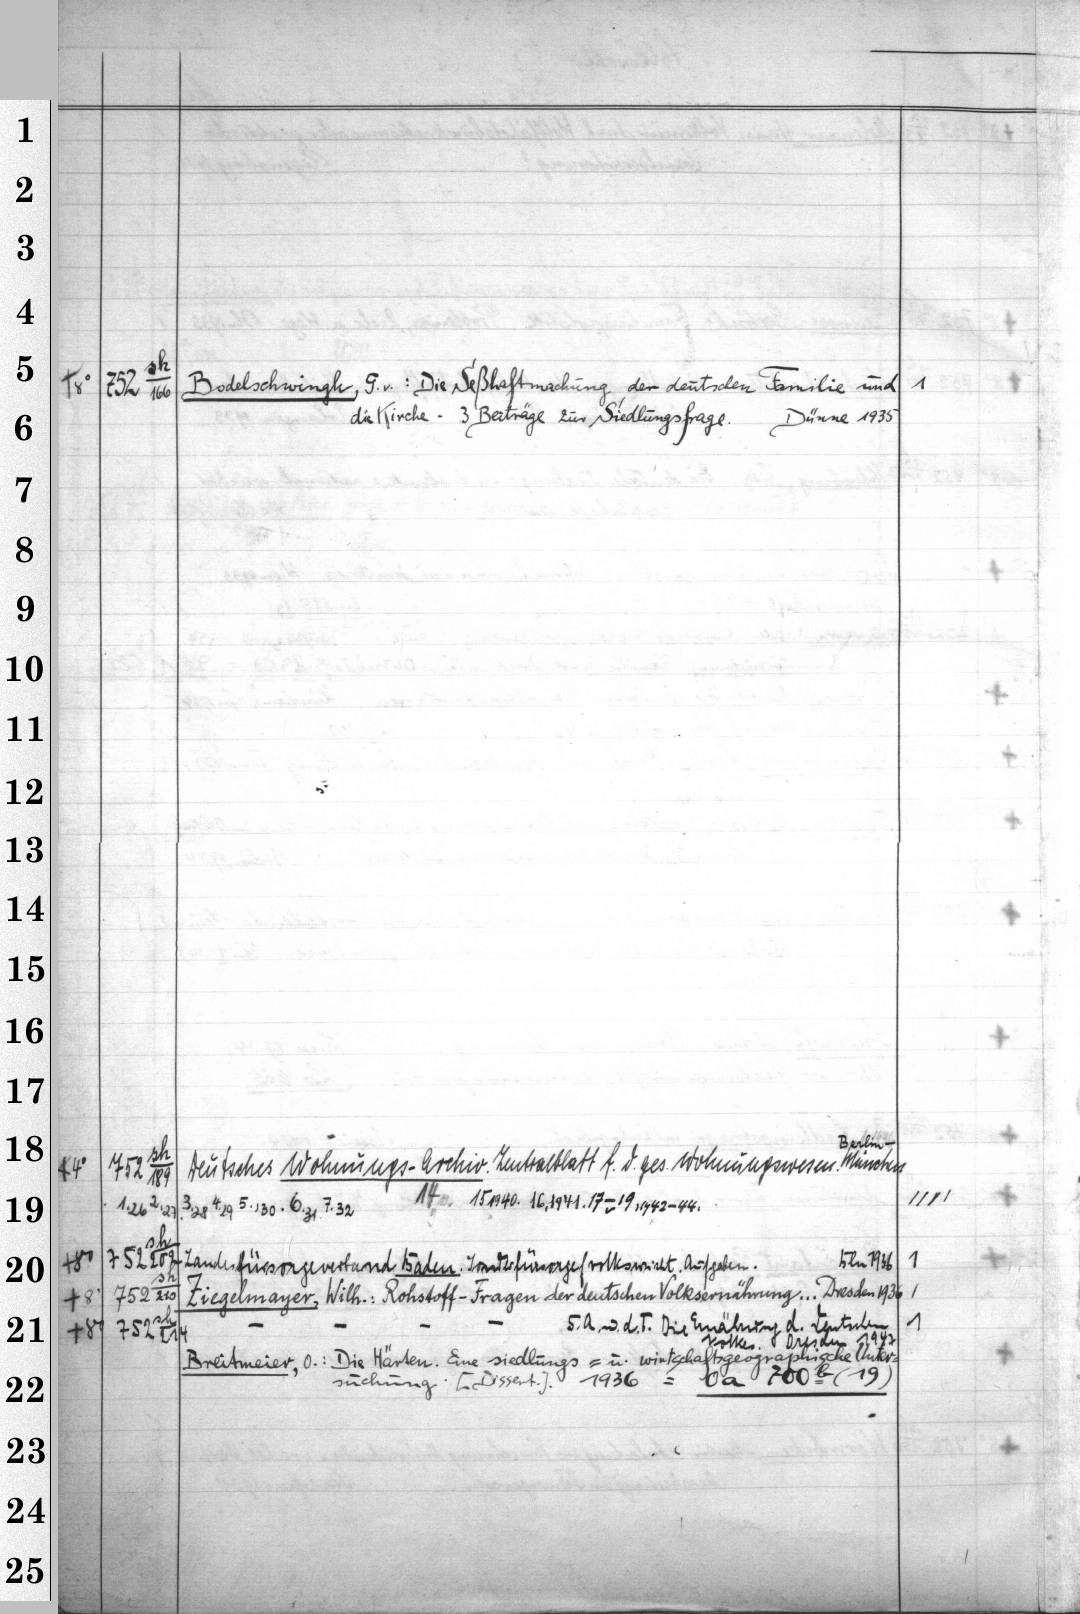 1
2
3
4
5
+8° 752 sh/166 Bodelschwingh, G. v. : Die Seßhaftmachung der deutschen Familie und 1
6
die Kirche - 3 Beiträge zur Siedlungsfrage. Dünne 1935
7
8
9
10
11
12
13
14
15
16
17
18
Berlin-
+4° 752 sh/189 Deutsches Wohnungs-Archiv. Zentralblatt f. d. ges. Wohnungswesen. München
19
1.26 2.27 3.28 4.29 5.30. 6.31 7.32 14 15 1940. 16,1941. 17-19, 1942-44. 1111
20
+8° 752 sh/207 Landesfürsorgeverband Baden. Sonderfürsorge f volkswirt. Aufgaben. Bln 1936 1
+8° 752 sh/210 Ziegelmayer, Wilh.: Rohstoff-Fragen der deutschen Volksernährung... Dresden 1936 1
21
+8° 752 sh/214 - - - - 5. A. u. d. T. Die Ernährung d. Deutschen 1
Volkes. Dresden 1947
Breitmeier, O.: Die Härten. Eine siedlungs = u. wirtschaftsgeographische Unter=
22
suchung. [Dissert.]. 1936 = 0a 700 b (19)
23
24
25